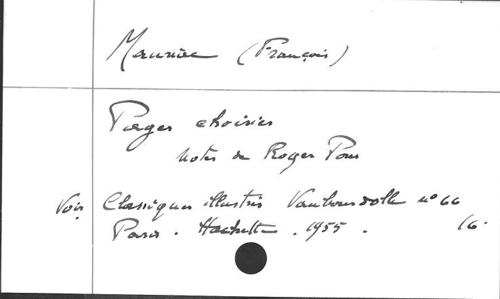 Mauriac (François)
Pages choisies
notes de Roger Pons
Voir Classiques illustrés Vaubourdolle n° 66
Paris. Hachette. 1955. 16.